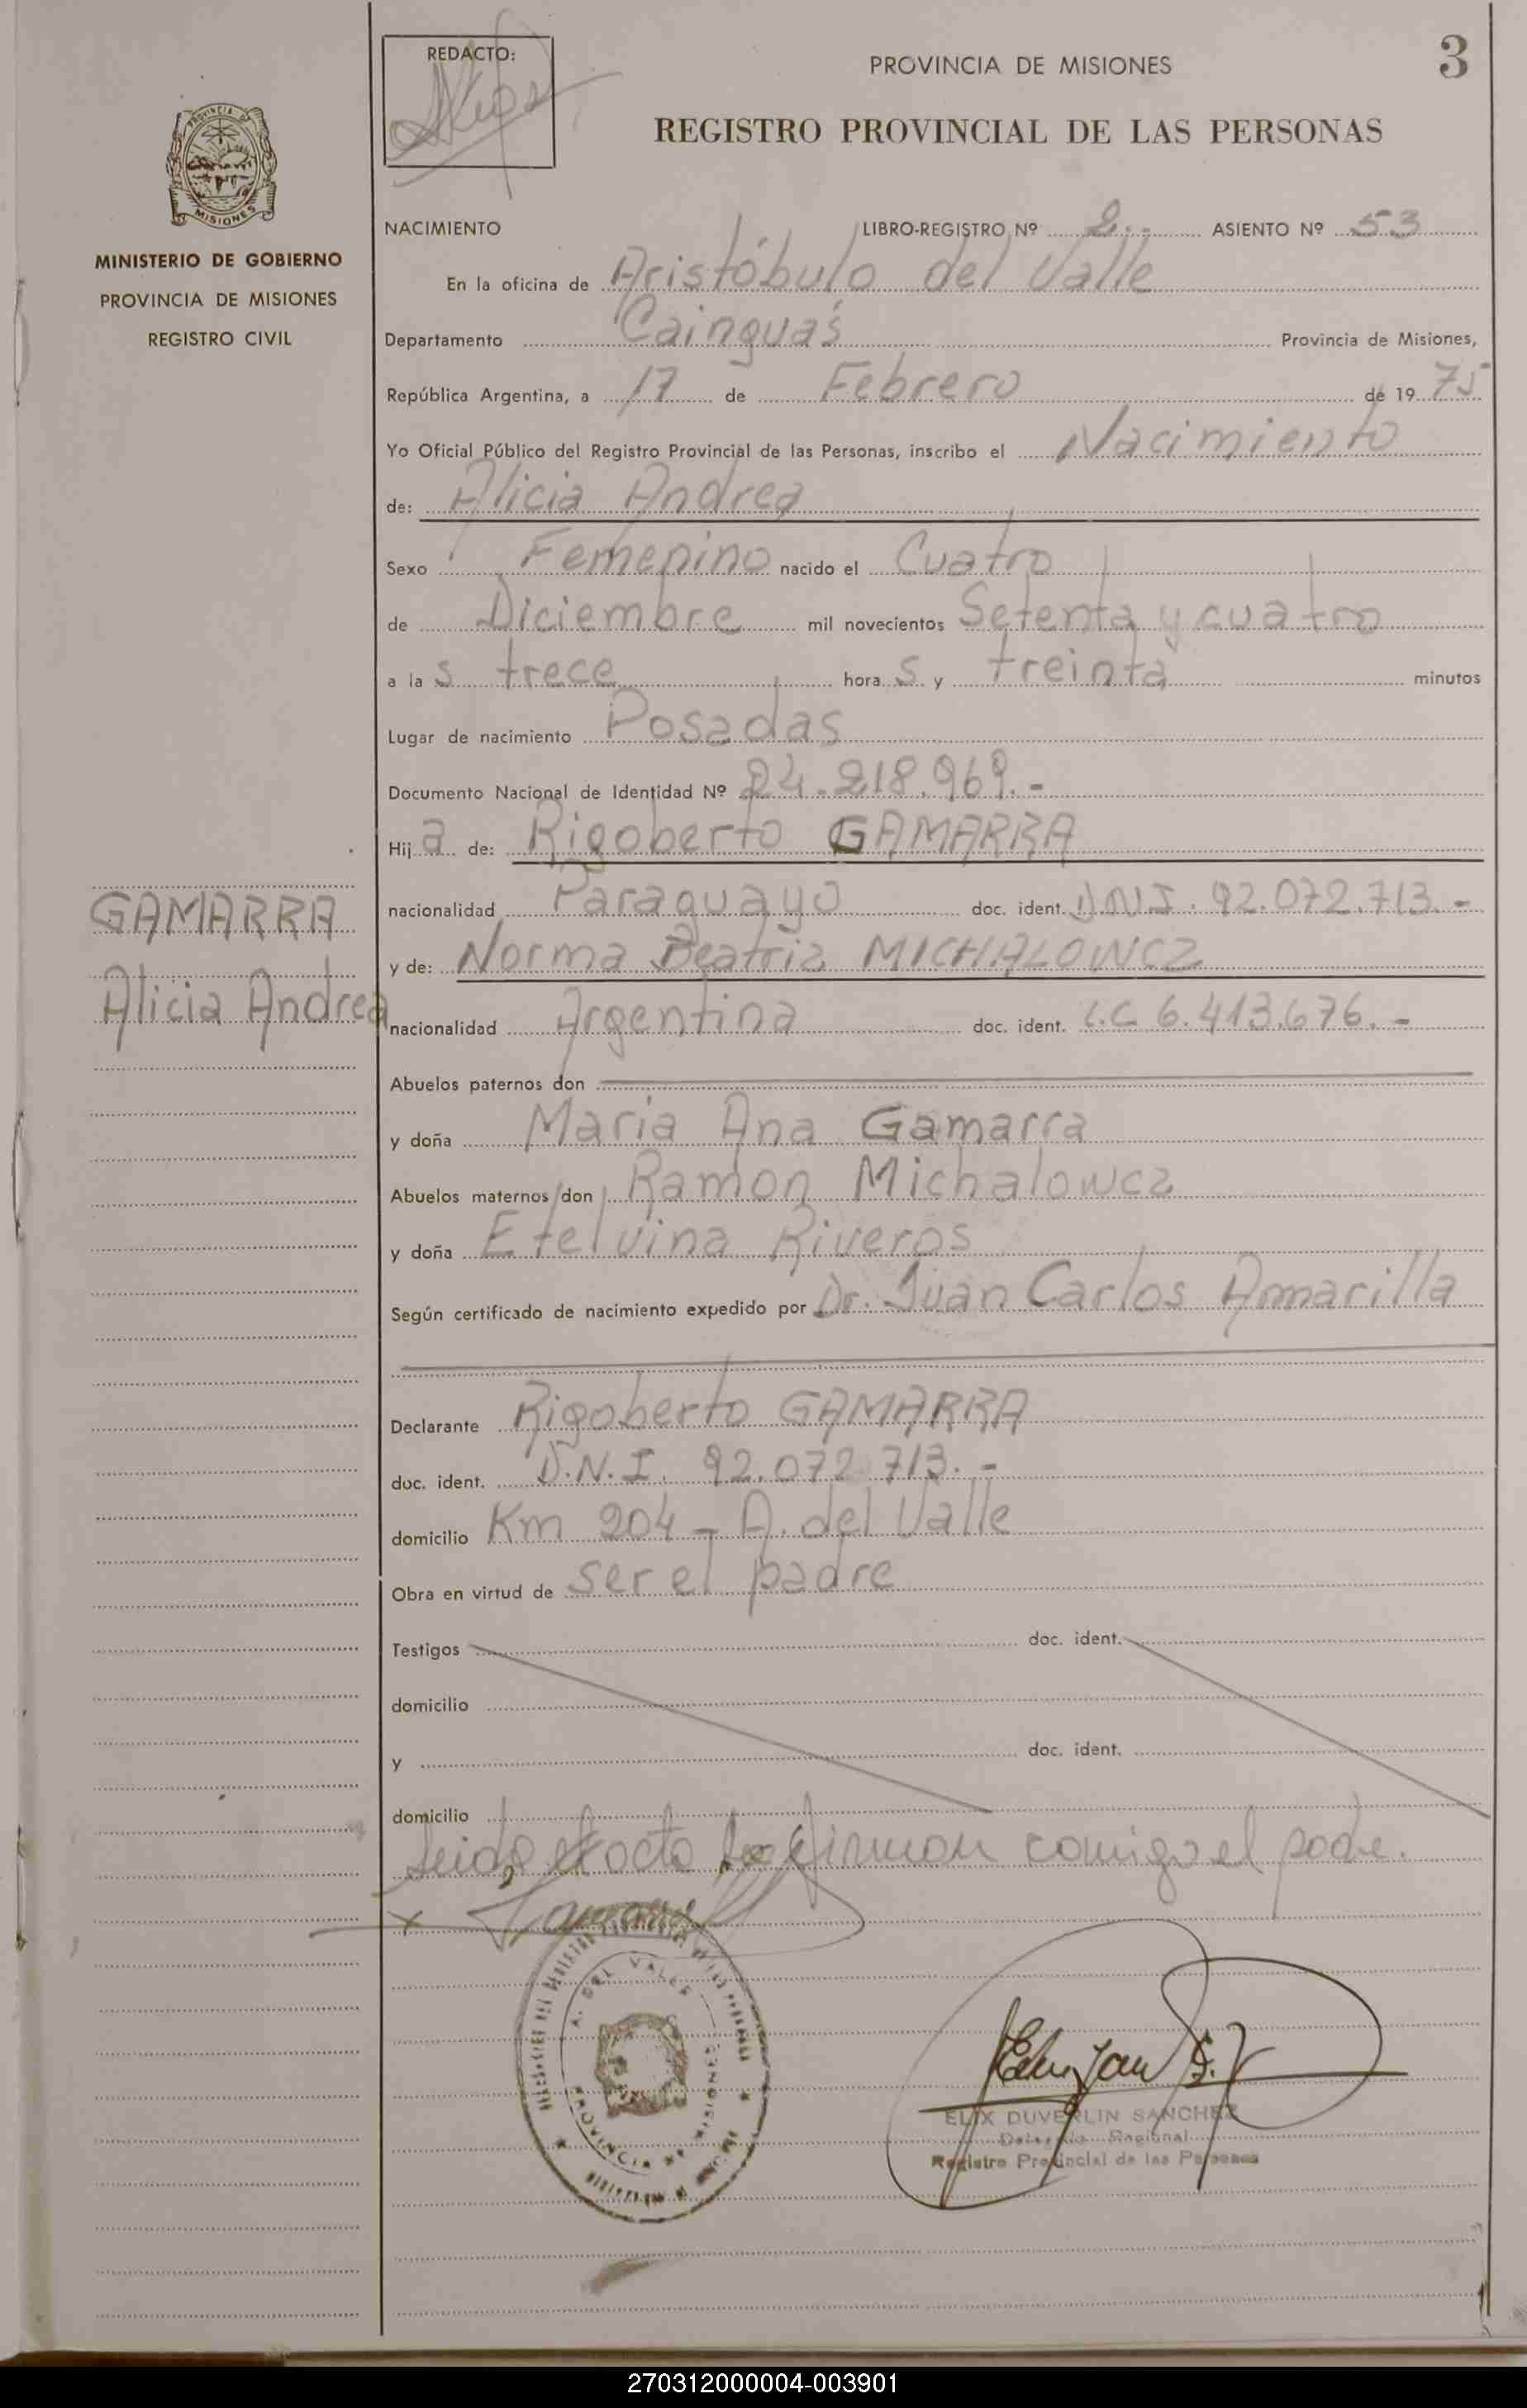 REDACTO:
PROVINCIA DE MISIONES
3
REGISTRO PROVINCIAL DE LAS PERSONAS
PROVINCIA DE
MISIONES
MINISTERIO DE GOBIERNO
PROVINCIA DE MISIONES
REGISTRO CIVIL
NACIMIENTO LIBRO-REGISTRO Nº 2.- ASIENTO Nº 53
En la oficina de Aristóbulo del Valle
Departamento Cainguás Provincia de Misiones,
República Argentina, a 17 de Febrero de 1975
Yo Oficial Público del Registro Provincial de las Personas, inscribo el Nacimiento
de: Alicia Andrea
Sexo Femenino nacido el Cuatro
de Diciembre mil novecientos Setenta y cuatro
a las trece horas y treinta minutos
Lugar de nacimiento Posadas
Documento Nacional de Identidad Nº 24.218.969.-
Hija de: Rigoberto GAMARRA
nacionalidad Paraguayo doc. ident. D.N.I. 92.072.713.-
y de: Norma Beatriz MICHALOWCZ
nacionalidad Argentina doc. ident. L.C 6.413.676.-
GAMARRA
Alicia Andrea
Abuelos paternos don
y doña Maria Ana Gamarra
Abuelos maternos don Ramon Michalowcz
y doña Etelvina Riveros
Según certificado de nacimiento expedido por Dr. Juan Carlos Amarilla
Declarante Rigoberto GAMARRA
doc. ident. D.N.I. 92.072.713.-
domicilio Km 204 - A. del Valle
Obra en virtud de ser el padre
Testigos doc. ident.
domicilio
y doc. ident.
domicilio
Leida el acta la firman conmigo el padre.
A. DEL VALLE
PROVINCIA DE MISIONES
ELIX DUVERLIN SANCHEZ
Delegado Regional
Registro Provincial de las Personas
270312000004-003901